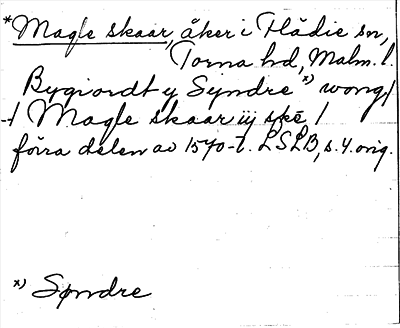 *Magle skaar, åker i Flädie sn,
Torna hd, Malm. l.
Bygiordt y Syndre *) wong/
-/ Magle skaar iij ske /
förra delen av 1570-t. LSLB, s. 4. orig.
*) Syndre